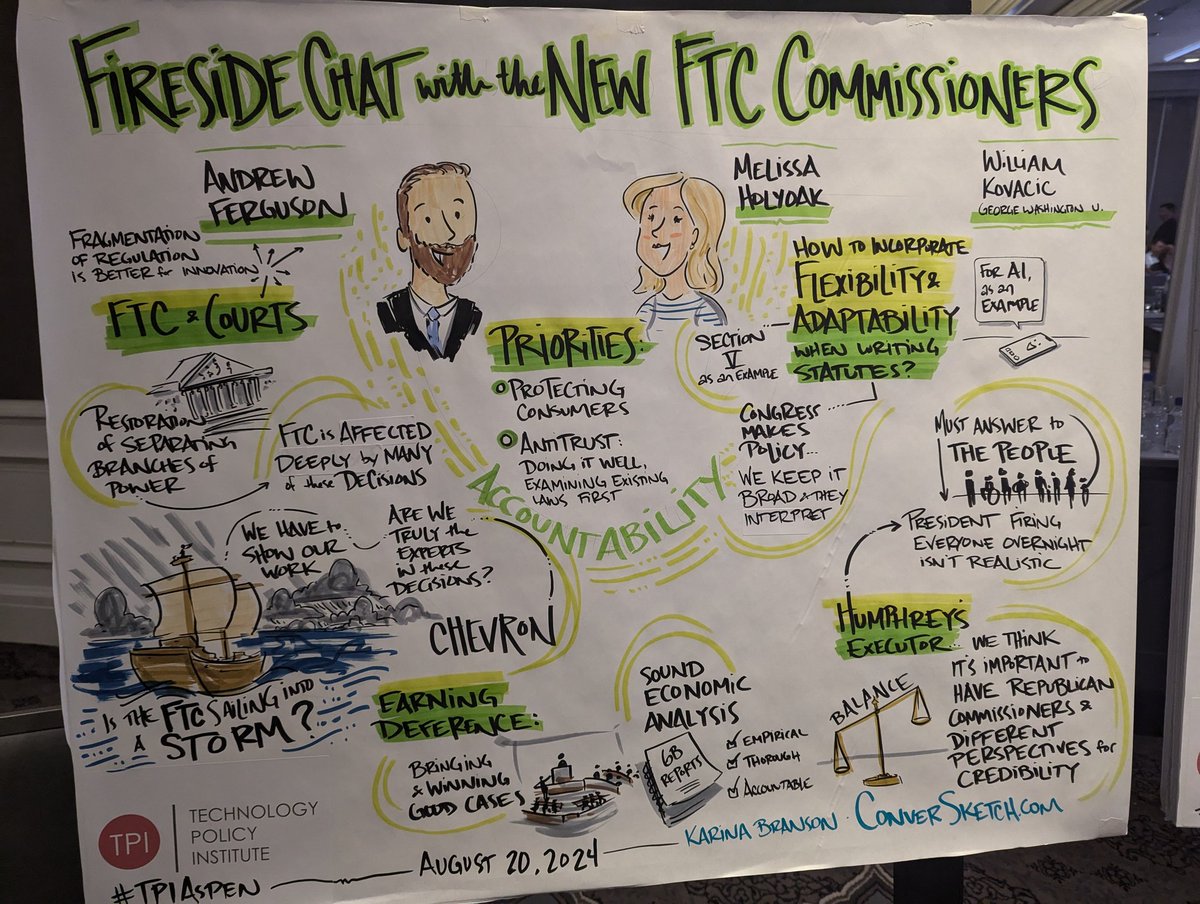 FIRESIDE CHAT with the NEW FTC COMMISSIONERS
ANDREW
FERGUSON
MELISSA
HOLYOAK
WILLIAM
KOVACIC
GEORGE WASHINGTON U.
FRAGMENTATION
OF REGULATION
IS BETTER for INNOVATION
FTC & COURTS
RESTORATION
OF SEPARATING
BRANCHES OF
POWER
FTC IS AFFECTED
DEEPLY by MANY
of these DECISIONS
PRIORITIES:
PROTECTING
CONSUMERS
ANTITRUST:
DOING IT WELL,
EXAMINING EXISTING
LAWS FIRST
ACCOUNTABILITY
SECTION
V
as an EXAMPLE
HOW TO INCORPORATE
FLEXIBILITY &
ADAPTABILITY
WHEN WRITING
STATUTES?
FOR AI,
as an
EXAMPLE
CONGRESS
MAKES
POLICY...
WE KEEP IT
BROAD & THEY
INTERPRET
MUST ANSWER to
THE PEOPLE
PRESIDENT FIRING
EVERYONE OVERNIGHT
ISN'T REALISTIC
HUMPHREY'S
EXECUTOR...
WE THINK
IT'S IMPORTANT to
HAVE REPUBLICAN
COMMISSIONERS &
DIFFERENT
PERSPECTIVES for
CREDIBILITY
BALANCE
WE HAVE to
SHOW OUR
WORK
ARE WE
TRULY the
EXPERTS
IN these
DECISIONS?
CHEVRON
IS THE FTC SAILING INTO
A STORM?
EARNING
DEFERENCE:
BRINGING
& WINNING
GOOD CASES
SOUND
ECONOMIC
ANALYSIS
6B
REPORTS
EMPIRICAL
THOROUGH
ACCOUNTABLE
TPI
TECHNOLOGY
POLICY
INSTITUTE
#TPIASPEN
AUGUST 20, 2024
KARINA BRANSON · CONVERSKETCH.COM